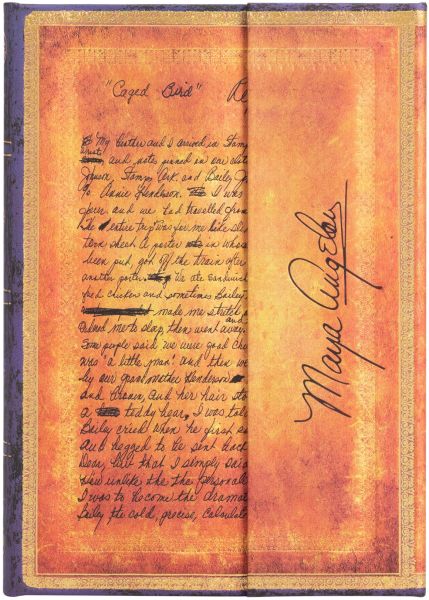 "Caged Bird" Re
My brother and I arrived in Stamp
and notes pinned in our
Johnson, Stamps Ark. and Bailey J
c/o Annie Henderson. I was
and we had travelled from
The entire trip was for me like
A porter in whose
been put, got off the train after
another porter We ate
fried chicken and sometimes Bailey
make me stretch
me to sleep, then went away.
Some people said we were good
was 'a little man' and then we
by our grandmother Henderson
and brown, and her hair
a teddy bear, I was told
Bailey cried when he first
and begged to be sent back
Dear, but that I simply said
unlike the the personali
I was to become the drama
Bailey the cold, precise, calculat
Maya Angelou